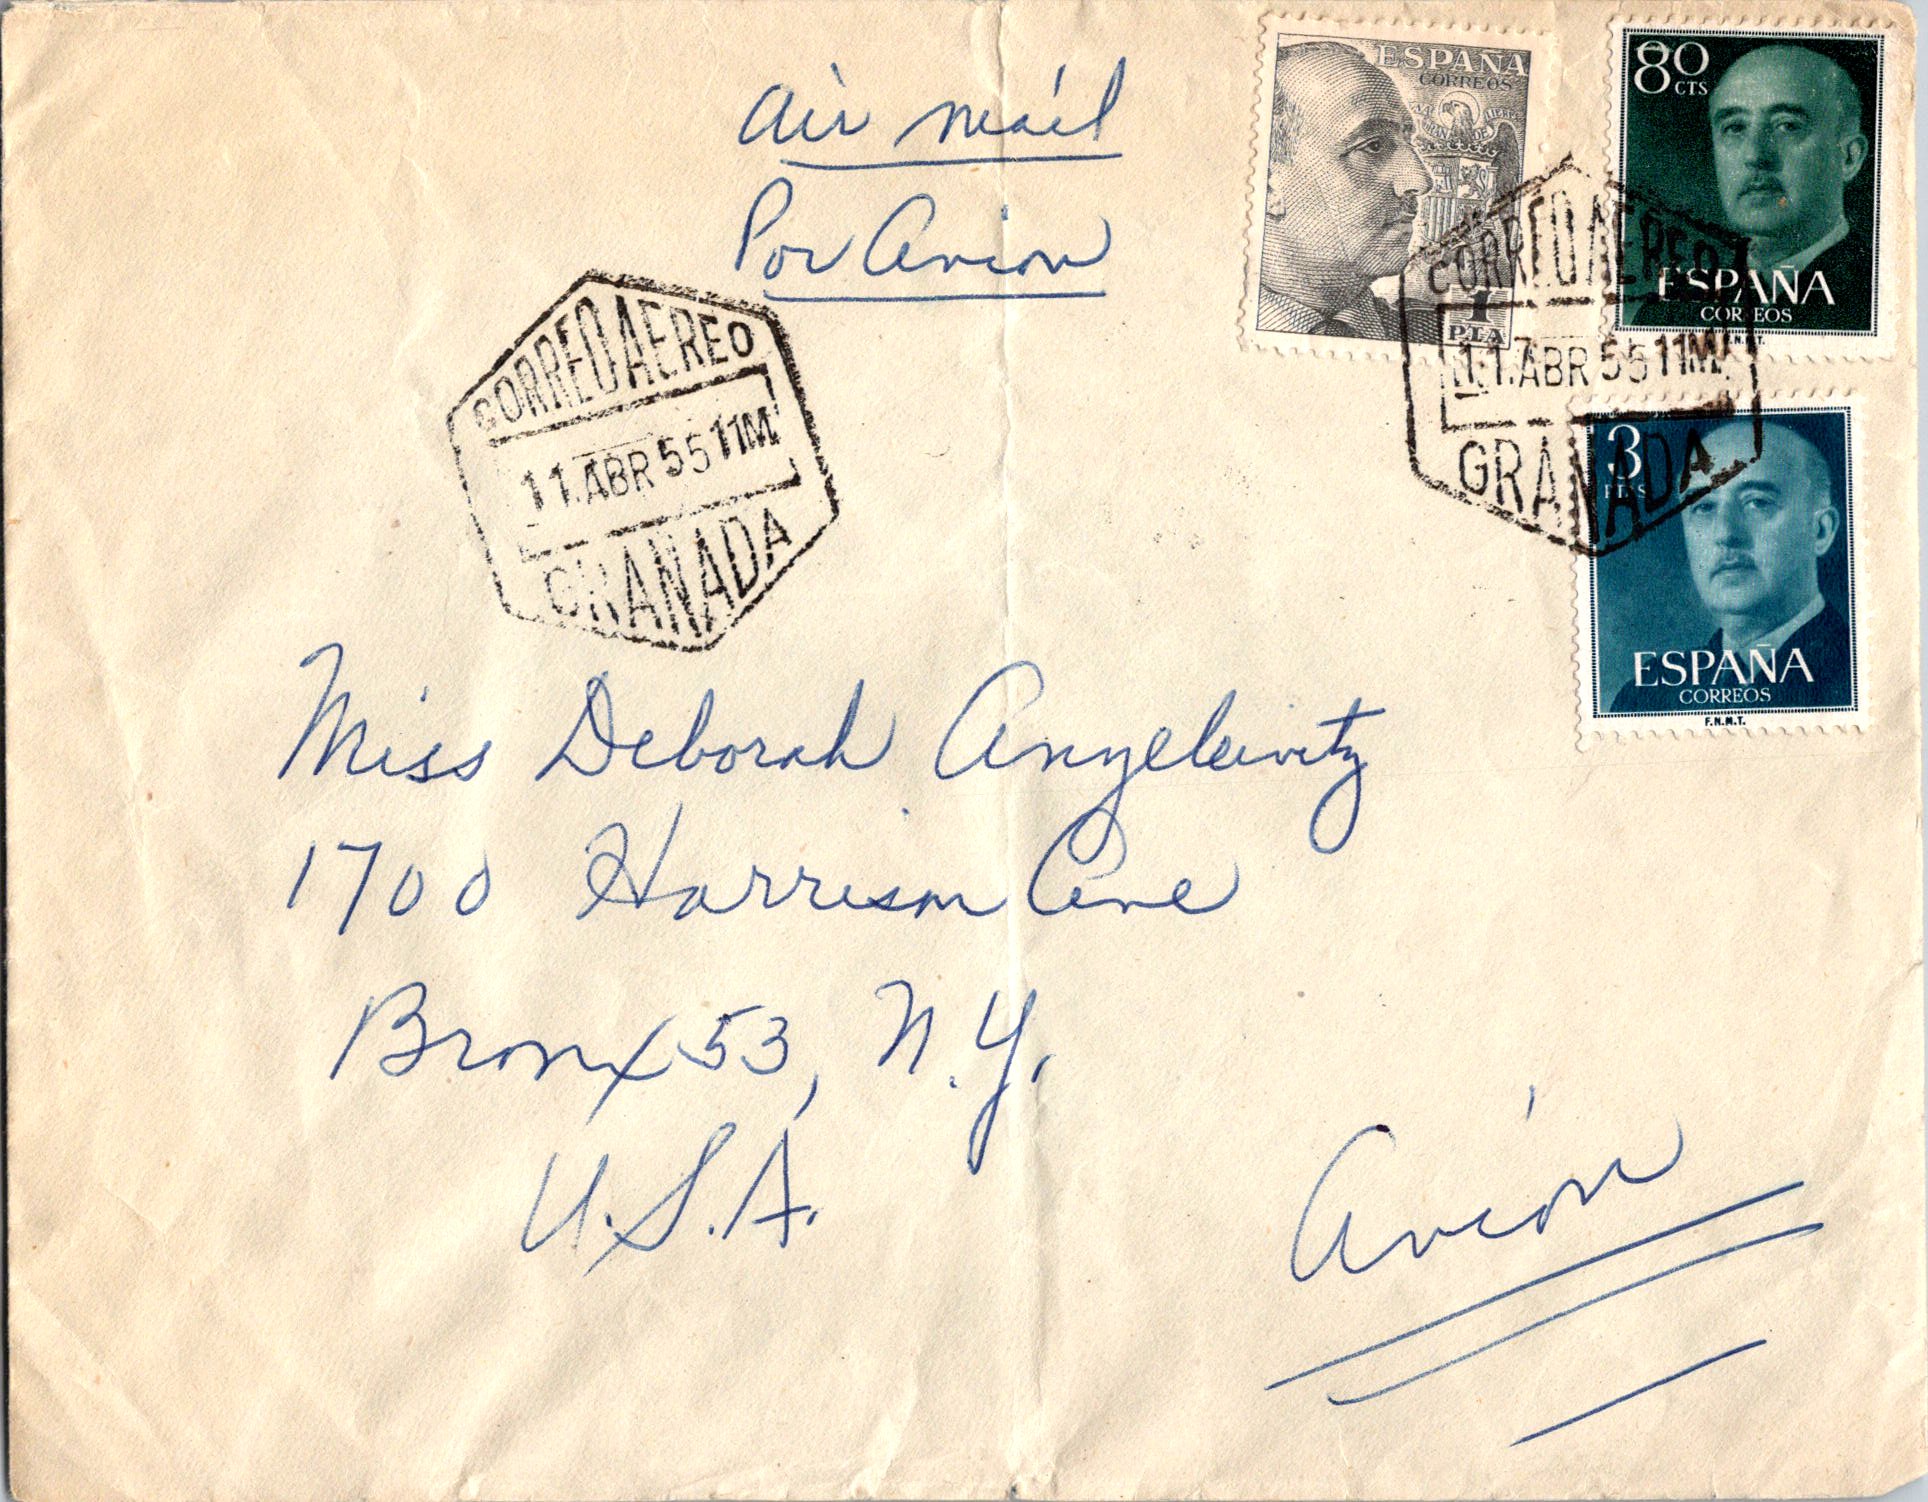 air mail
Por Avion
ESPAÑA
CORREOS
1
PTA
80
CTS
ESPAÑA
CORREOS
F.N.M.T.
CORREO AEREO
11.ABR 55 11M
GRANADA
CORREO AEREO
11.ABR 55 11M.
GRANADA
3
PTAS
ESPAÑA
CORREOS
F.N.M.T.
Miss Deborah
1700 Harrison Ave
Bronx 53, N.Y.
U.S.A.
Avión